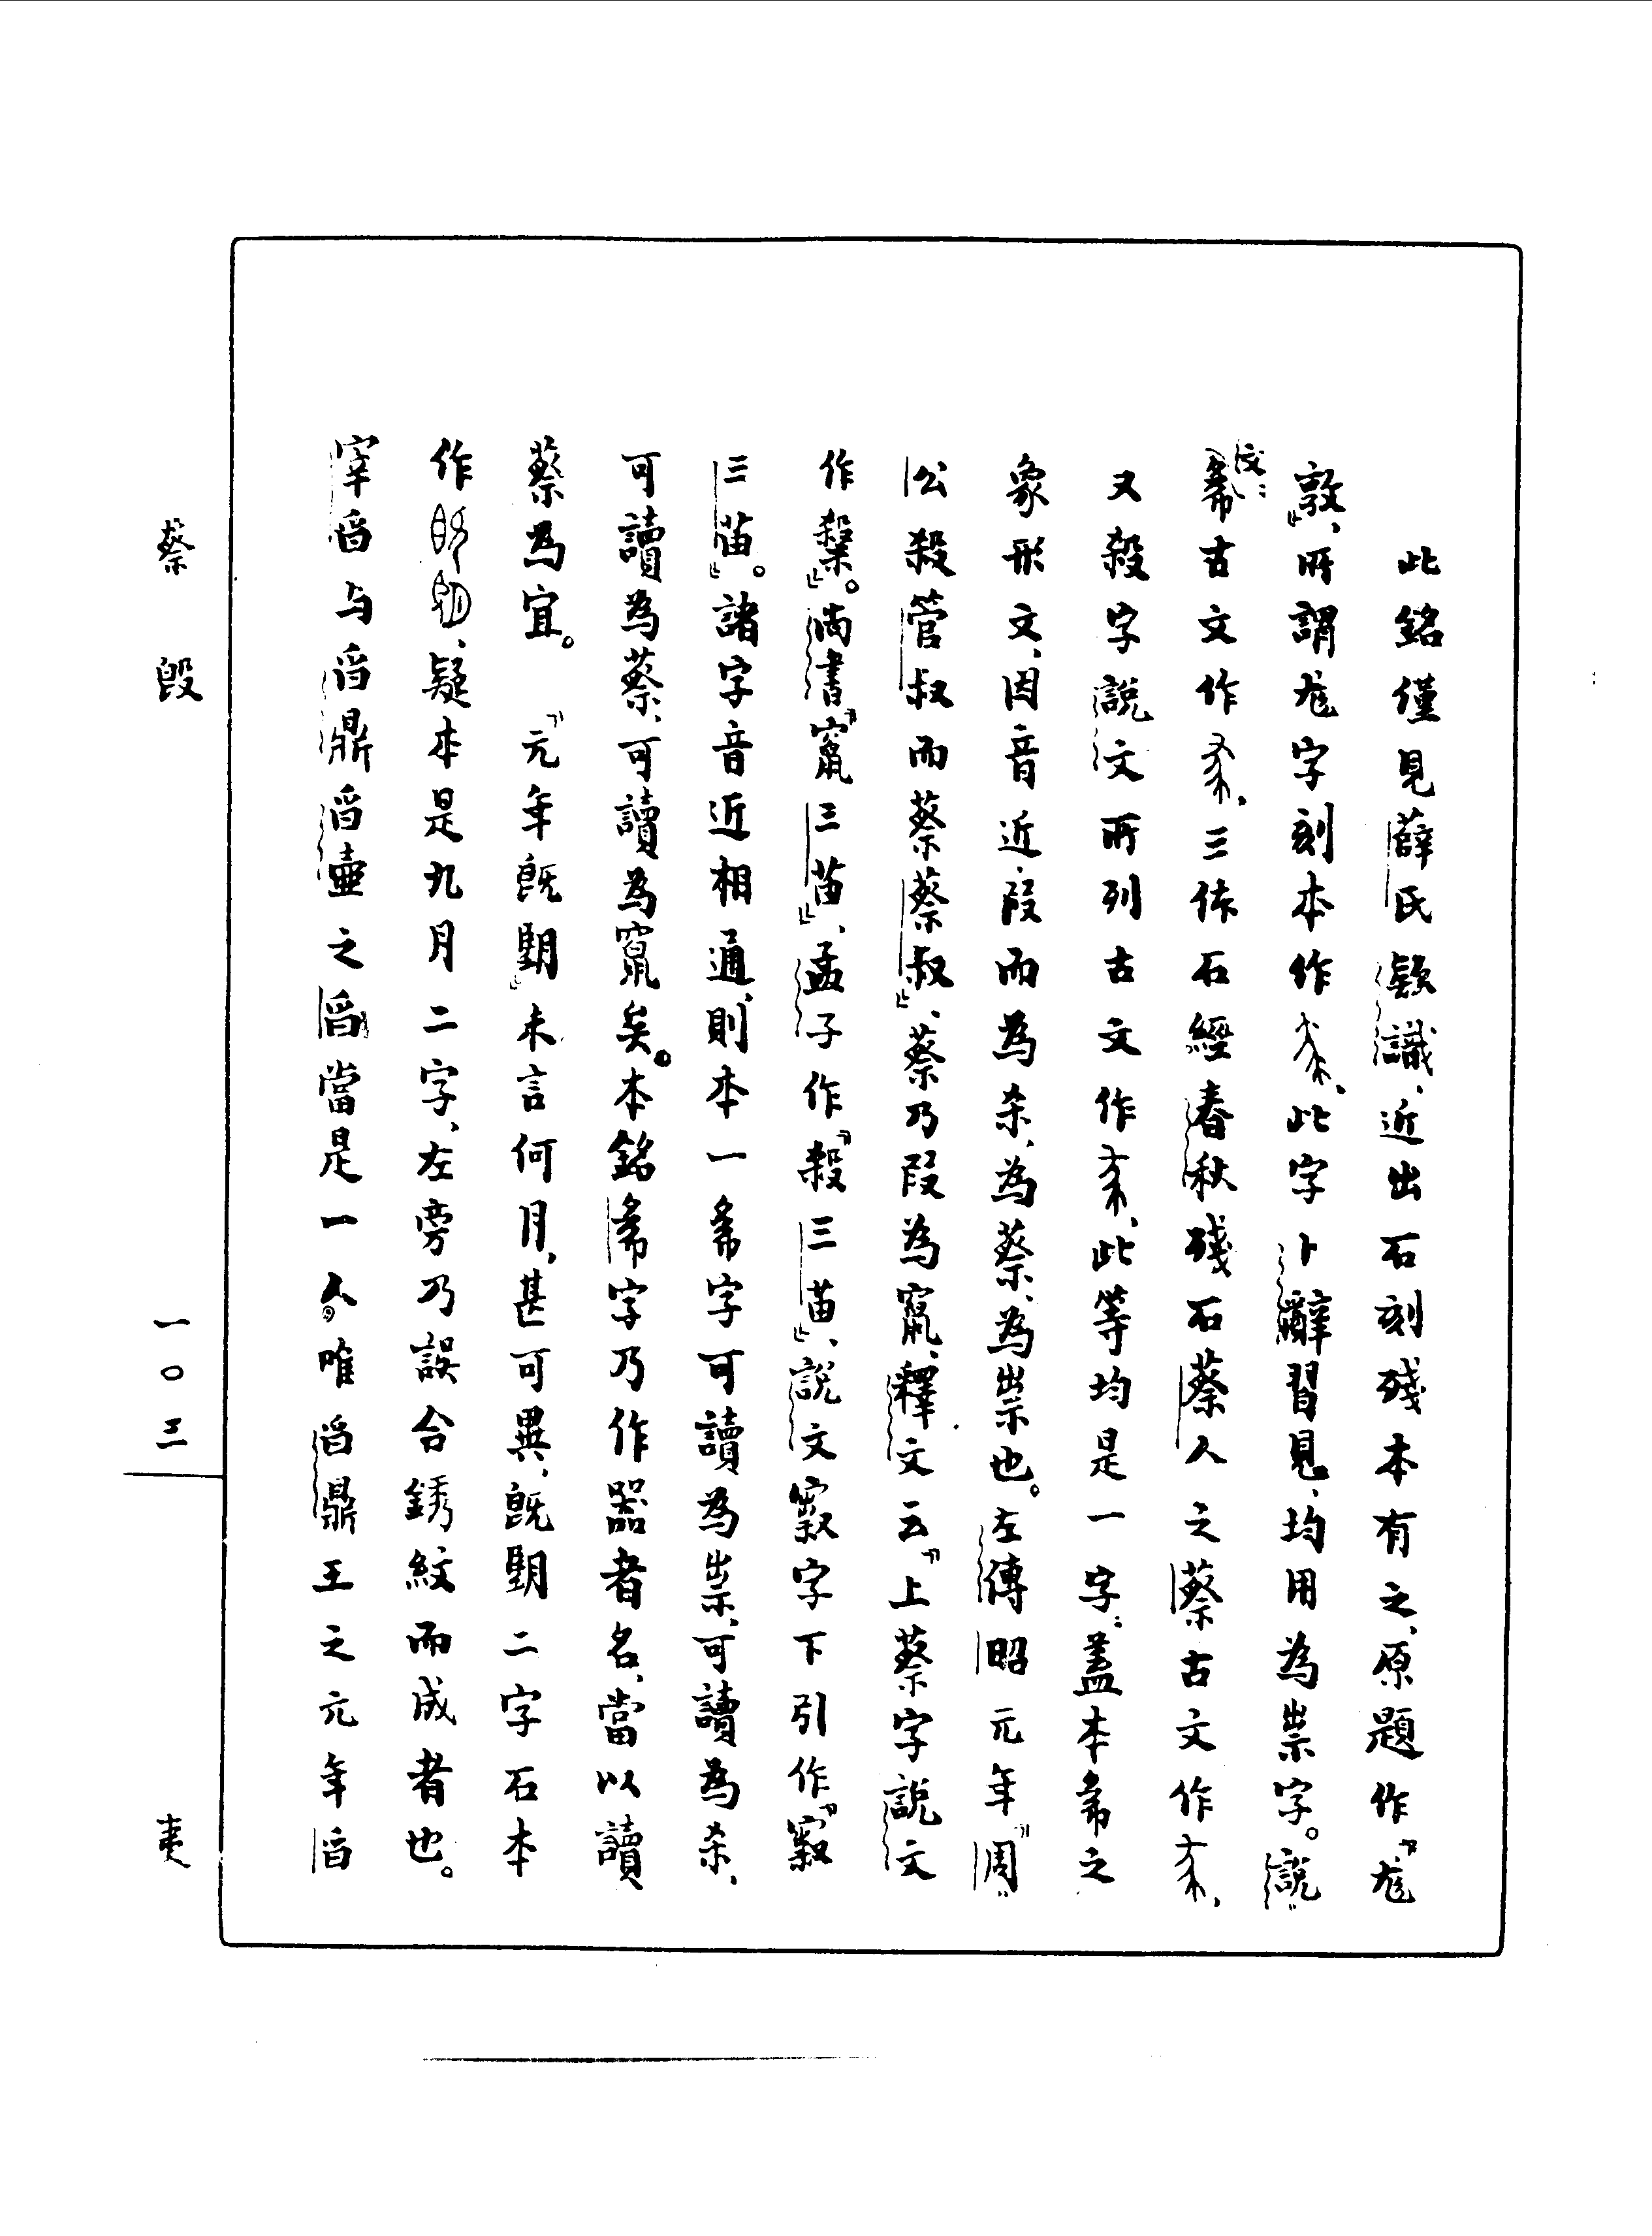 此銘僅見薛氏款識、近出石刻殘本有之、原題作『尨
敦』、所謂尨字刻本作、此字卜辭習見、均用為祟字。說
文：㣇古文作、三体石經春秋殘石蔡人之蔡古文作、
又殺字說文所列古文作、此等均是一字：蓋本㣇之
象形文、因音近叚而為杀、為蔡、為祟也。左傳昭元年『周
公殺管叔而蔡蔡叔』、蔡乃叚為竄、釋文云『上蔡字說文
作𥻦』。尚書『竄三苗』、孟子作『殺三苗』、說文𡫸字下引作『𡫸
三苗』。諸字音近相通、則本一㣇字可讀為祟、可讀為杀、
可讀為蔡、可讀為竄矣。本銘㣇字乃作器者名、當以讀
蔡為宜。『元年既朢』未言何月、甚可異、既朢二字石本
作、疑本是九月二字、左旁乃誤合銹紋而成者也。
宰曶与曶鼎曶壷之曶當是一人。唯曶鼎王之元年曶
蔡 𣪘
一〇三